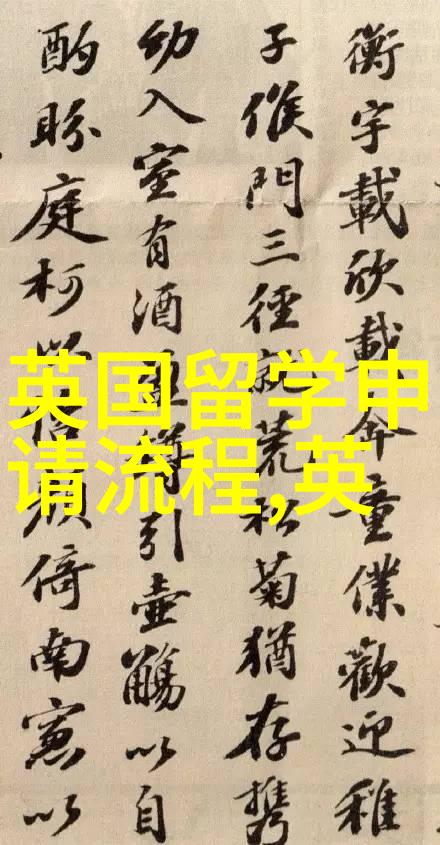 衡宇載欣載奔童僕歡迎稚
子候門三徑就荒松菊猶存携
幼入室有酒盈罇引壺觴以自
酌眄庭柯以怡顏倚南窓以
英国留学申
请流程,英